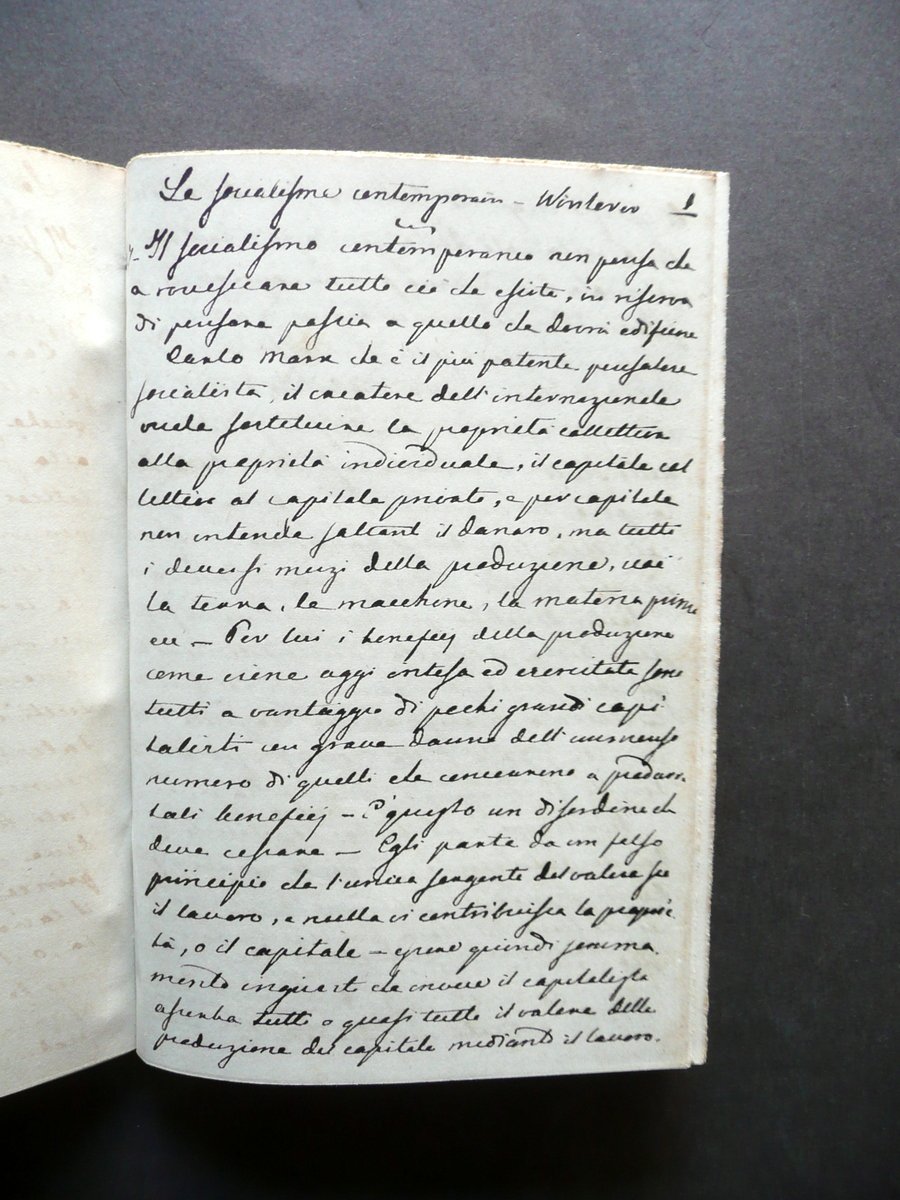 Le socialisme contemporain - Winterer 1
Il socialismo contemporaneo non pensa che
a rovesciare tutto ciò che esiste, in riserva
di pensare poscia a quello che dovrà edificare
Carlo Marx che è il più potente pensatore
socialista, il creatore dell'internazionale
vuole sostituire la proprietà collettiva
alla proprietà individuale, il capitale col
lettivo al capitale privato, e per capitale
non intende soltanto il danaro, ma tutti
i diversi mezzi della produzione, cioè
la terra, le macchine, la materia prima
ecc - Per lui i beneficj della produzione
come viene oggi intesa ed esercitata sono
tutti a vantaggio di pochi grandi capi
talisti con grave danno dell'immenso
numero di quelli che concorrono a produrre
tali beneficj - È questo un disordine ch
deve cessare - Egli parte da un falso
principio che l'unica sorgente del valore sia
il lavoro, e nulla vi contribuisca la proprie
tà, o il capitale - quindi somma
mente ingiusto che invece il capitalista
assorba tutto o quasi tutto il valore della
produzione del capitale mediante il lavoro.